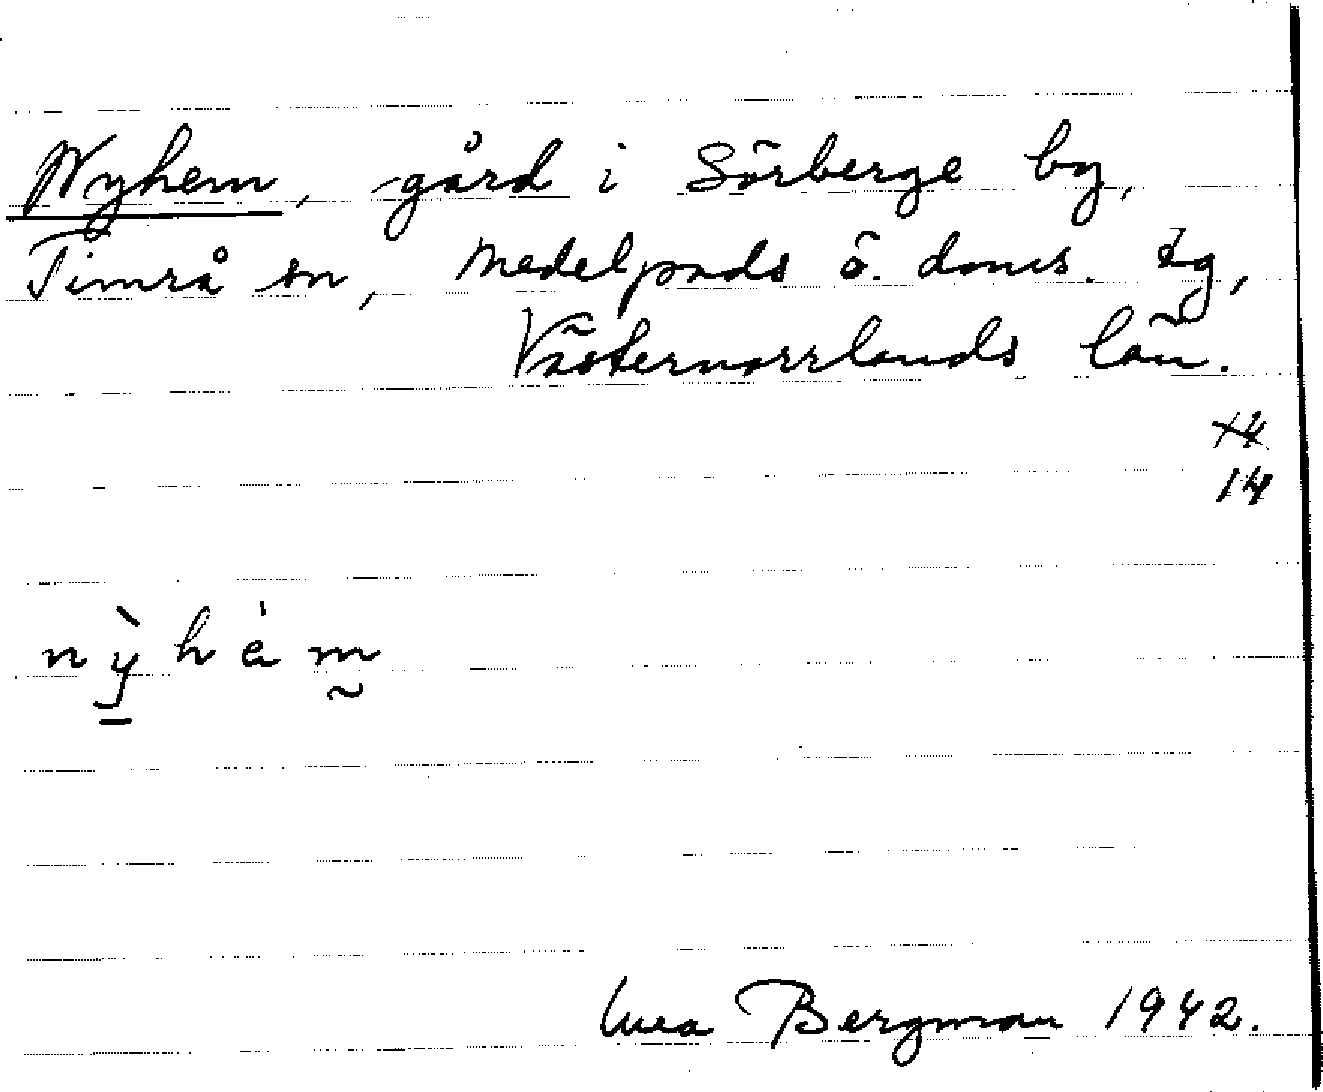 Nyhem, gård i Sörberge by,
Timrå sn, Medelpads ö. doms. tg,
Västernorrlands län.
14
14
nỳhèm
Bergman 1942.